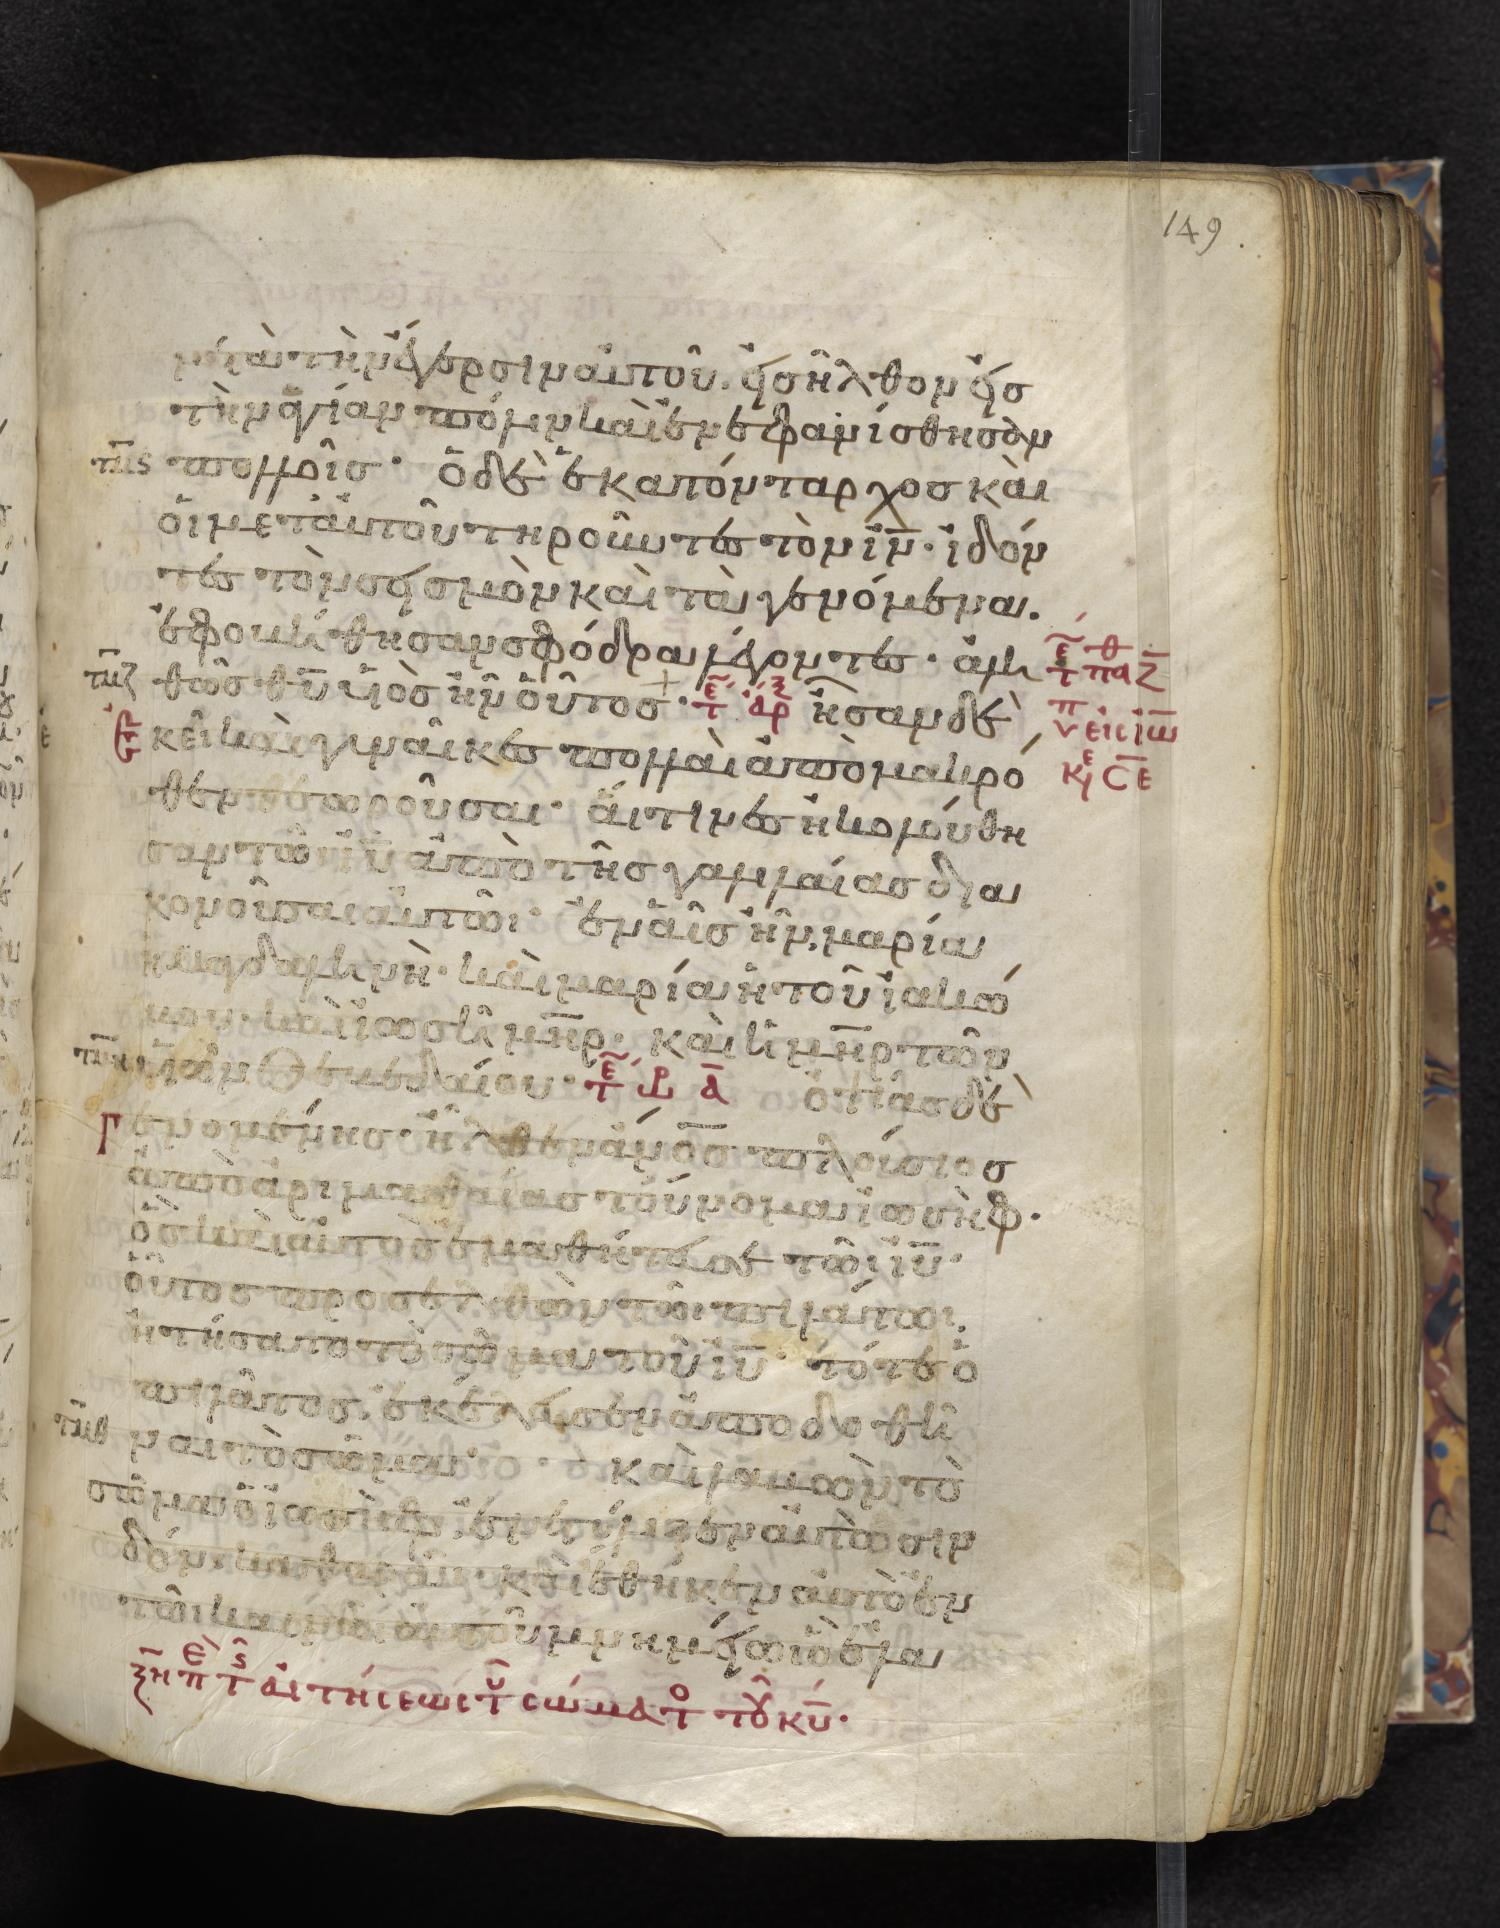 149
μετὰ τὴν ἔγερσιν αὐτοῦ. εἰσῆλθον εἰς
τὴν ἁγίαν πόλιν καὶ ἐνεφανίσθησαν
τμς πολλοῖς· ὁ δὲ ἑκατόνταρχος καὶ
οἱ μετ' αὐτοῦ τηροῦντες τὸν ιν̅· ἰδόν
τες τὸν σεισμὸν καὶ τὰ γενόμενα.
ἐφοβήθησαν σφόδρα λέγοντες· ἀλη
τμζ θῶς θυ̅ υἱὸς ἦν οὗτος· ἦσαν δὲ
ἐκεῖ καὶ γυναῖκες πολλαὶ ἀπὸ μακρό
θεν θεωροῦσαι· αἵτινες ἠκολούθη
σαν τῶ ιυ̅ ἀπὸ τῆς γαλιλαίας δια
κονοῦσαι αὐτῶι· ἐν αἷς ἦν μαρία
ἡ μαγδαληνὴ· καὶ μαρία ἡ τοῦ ἰακώ
βου καὶ ἰωσῆ μη̅ρ· καὶ ἡ μη̅ρ τῶν
τμη υἱῶν ζεβεδαίου· ὀψίας δὲ
γενομένης· ἦλθεν ἄνο̅ς πλούσιος
ἀπὸ ἀριμαθαίας τοὔνομα ἰωσὴφ·
ὃς καὶ αὐτὸς ἐμαθήτευσε τῶι ιυ̅·
οὗτος προσελθὼν τῶι πιλάτωι,
ἠτήσατο τὸ σῶμα τοῦ ιυ̅· τότε ὁ
πιλᾶτος ἐκέλευσεν ἀποδοθῆ
τμθ ναι τὸ σῶμα· καὶ λαβὼν τὸ
σῶμα ὁ ἰωσὴφ, ἐνετύλιξεν αὐτὸ σιν
δόνι καθαρᾶι· καὶ ἔθηκεν αὐτὸ ἐν
τῶι καινῶι αὐτοῦ μνημείωι ὃ ἐλα